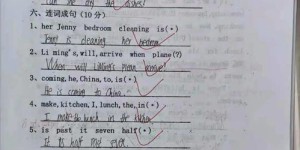 can we dry the dishes?
六、连词成句（10分）
1. her Jenny bedroom cleaning is(.)
Jenny is cleaning her bedroom.
2. Li ming's,will,arrive when plane(?)
When will LiMing's plane arrive?
3. coming,he,China,to,is(.)
He is coming to China.
4. make,kitchen,I,lunch,the,in(.)
I make the lunch in the kitchen
5. is past it seven half(.)
It is half past seven.